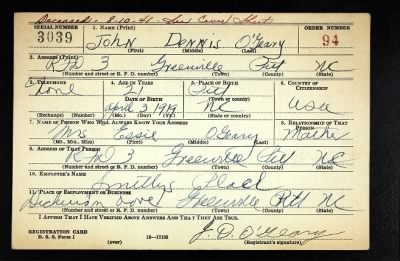 Deceased - 8-10-41 - See Cover Sheet
SERIAL NUMBER 1. NAME (Print) ORDER NUMBER
3039 JOHN DENNIS O'Geary 94
(First) (Middle) (Last)
2. ADDRESS (Print)
RFD 3 Greenville Pitt NC
(Number and street or R. F. D. number) (Town) (County) (State)
3. TELEPHONE 4. AGE IN YEARS 5. PLACE OF BIRTH 6. COUNTRY OF CITIZENSHIP
None 21 Pitt
DATE OF BIRTH (Town or county)
april 3 1919 NC USA
(Exchange) (Number) (Mo.) (Day) (Yr.) (State or country)
7. NAME OF PERSON WHO WILL ALWAYS KNOW YOUR ADDRESS 8. RELATIONSHIP OF THAT PERSON
Mrs Essie O'Geary Mother
(Mr., Mrs., Miss) (First) (Middle) (Last)
9. ADDRESS OF THAT PERSON
RFD 3 Greenville Pitt NC
(Number and street or R. F. D. number) (Town) (County) (State)
10. EMPLOYER'S NAME
Smithys Place
11. PLACE OF EMPLOYMENT OR BUSINESS
Dickinson ave Greenville Pitt NC
(Number and street or R. F. D. number) (Town) (County) (State)
I AFFIRM THAT I HAVE VERIFIED ABOVE ANSWERS AND THAT THEY ARE TRUE.
REGISTRATION CARD J. D. O'Geary
D. S. S. Form 1 (over) 16-17105 (Registrant's signature)